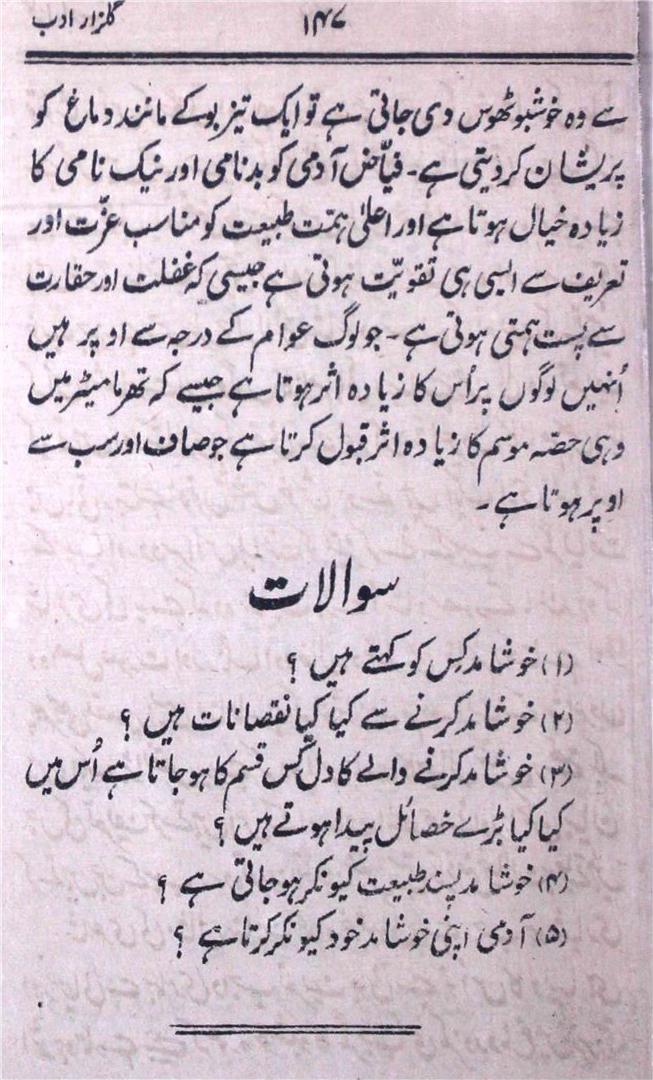 گلزار ادب
۱۴۷
سے وہ خوشبو ٹھوس دی جاتی ہے تو ایک تیز بو کے مانند دماغ کو
پریشان کر دیتی ہے۔ فیاّض آدمی کو بدنامی اور نیک نامی کا
زیادہ خیال ہوتا ہے اور اعلیٰ ہمت طبیعت کو مناسب عزّت اور
تعریف سے ایسی ہی تقویّت ہوتی ہے جیسی کہ غفلت اور حقارت
سے پست ہمتی ہوتی ہے۔ جو لوگ عوام کے درجہ سے اوپر ہیں
اُنہیں لوگوں پر اُس کا زیادہ اثر ہوتا ہے جیسے کہ تھرمامیٹر میں
وہی حصّہ موسم کا زیادہ اثر قبول کرتا ہے جو صاف اور سب سے
اوپر ہوتا ہے۔
سوالات
(۱) خوشامد کِس کو کہتے ہیں ؟
(۲) خوشامد کرنے سے کیا کیا نقصانات ہیں ؟
(۳) خوشامد کرنے والے کا دل کس قسم کا ہو جاتا ہے اُس میں
کیا کیا بُرے خصائل پیدا ہوتے ہیں ؟
(۴) خوشامد پسند طبیعت کیونکر ہو جاتی ہے ؟
(۵) آدمی اپنی خوشامد خود کیونکر کرتا ہے ؟